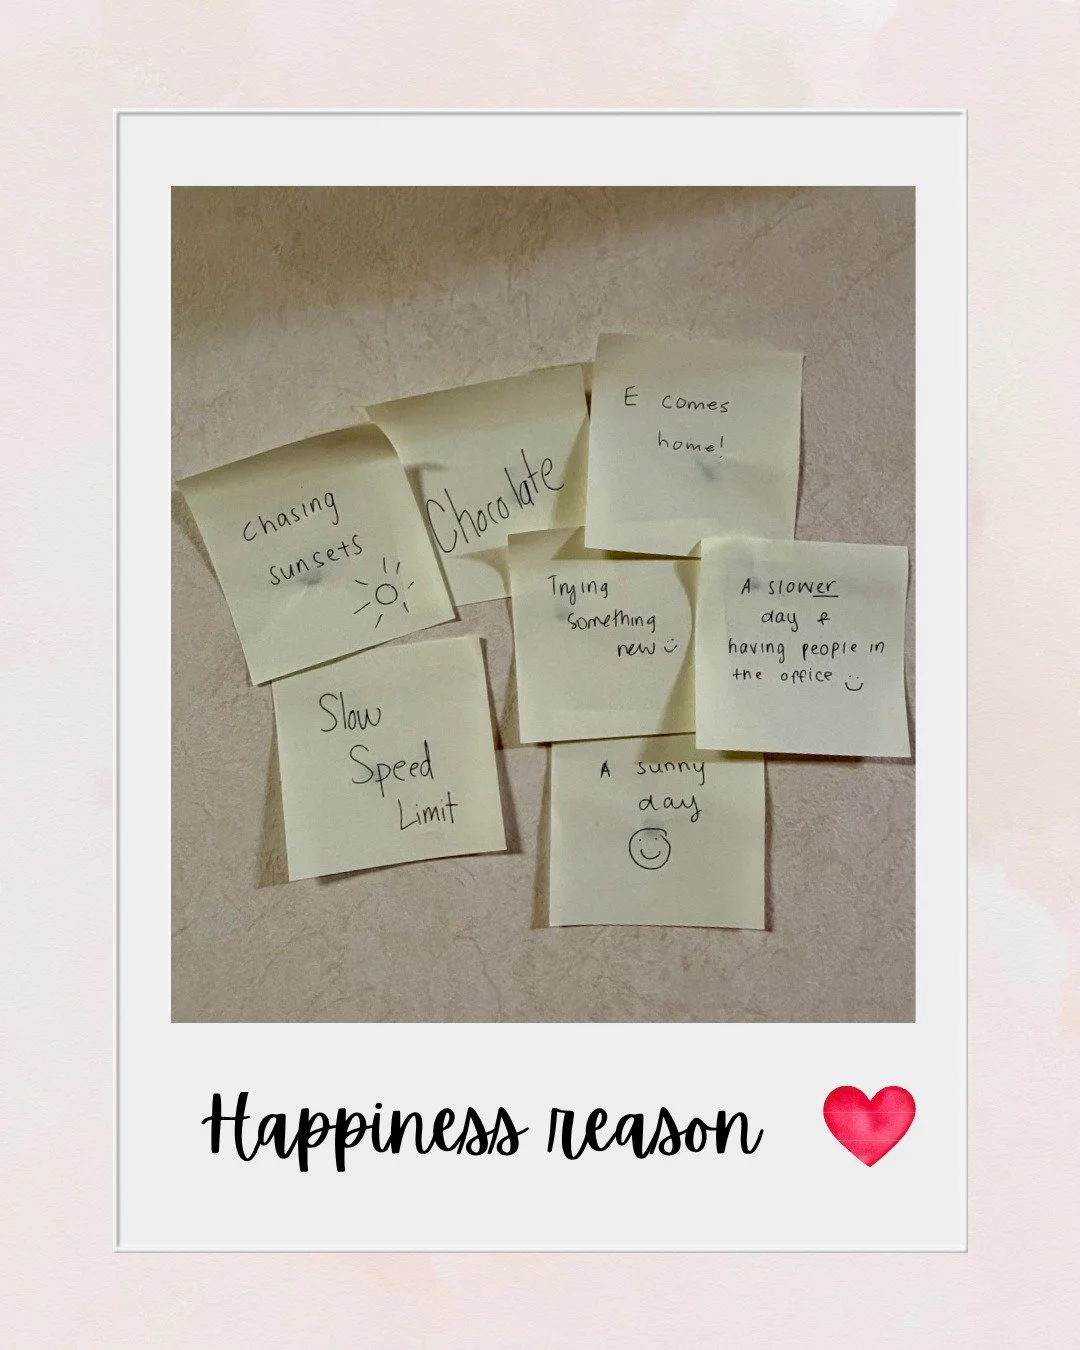 chasing
sunsets
Chocolate
E comes
home!
Trying
something
new
A slower
day &
having people in
the office
Slow
Speed
Limit
A sunny
day
Happiness reason